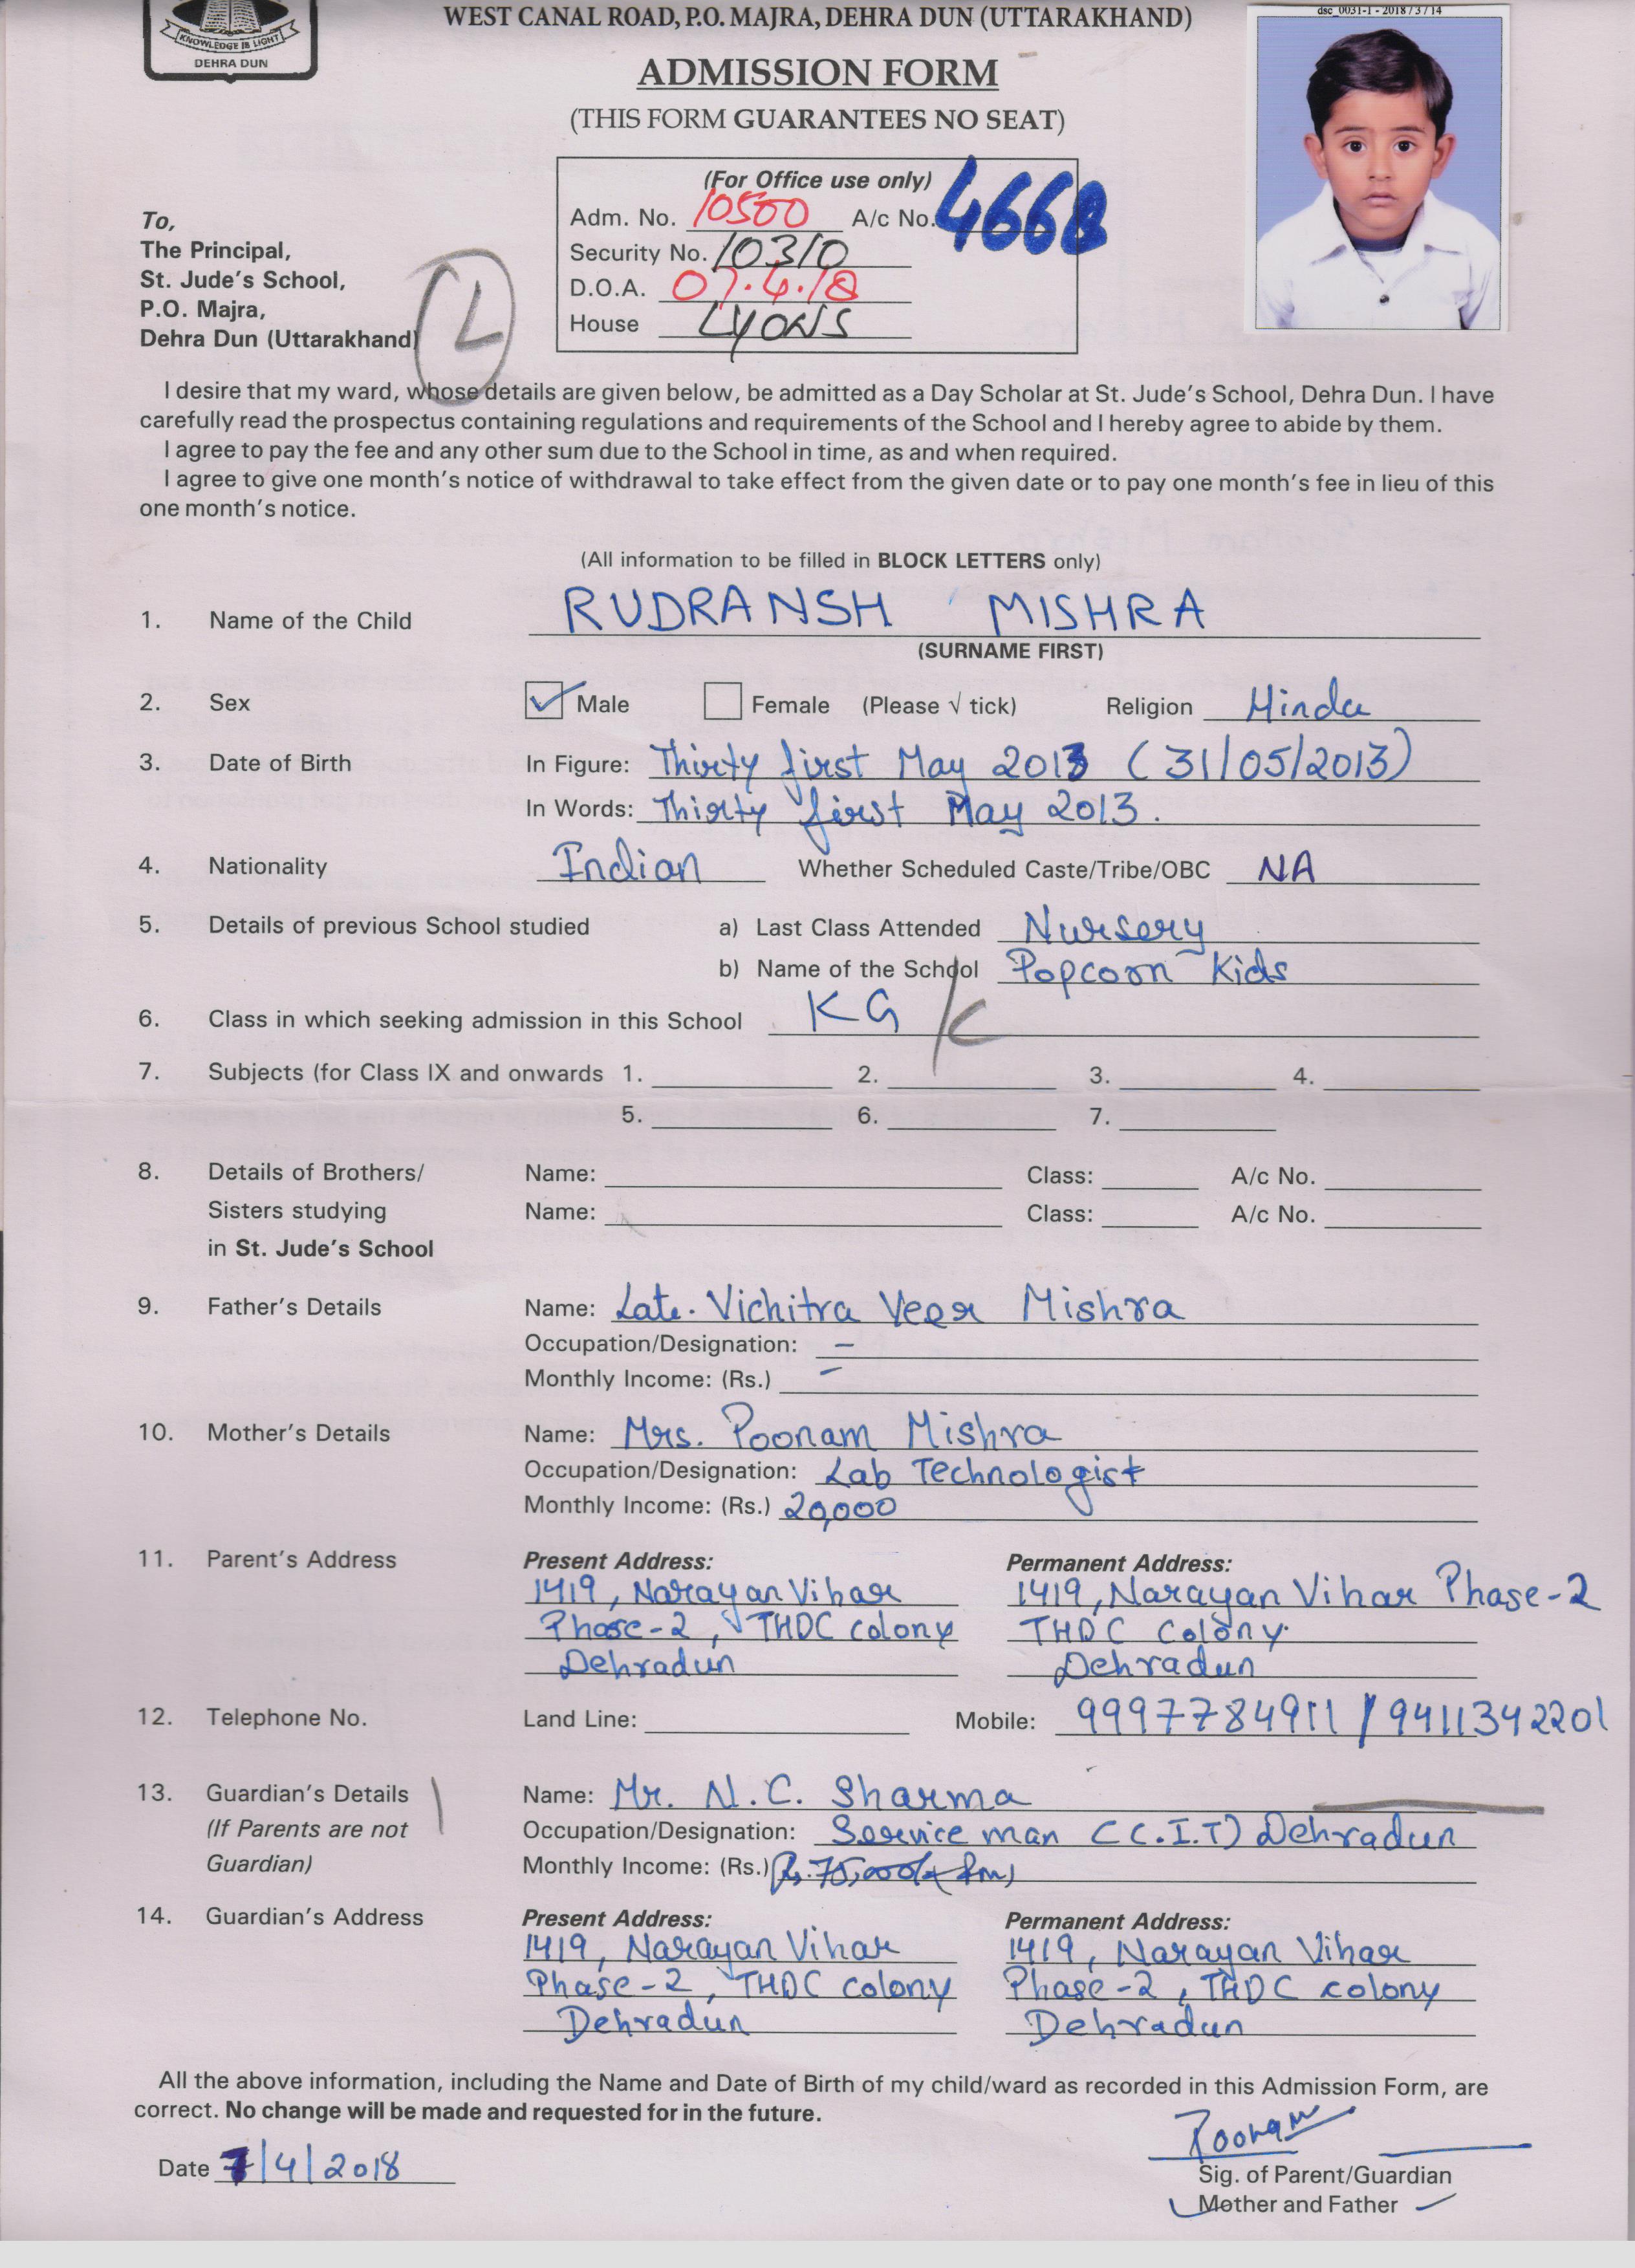 KNOWLEDGE IS LIGHT
DEHRA DUN
WEST CANAL ROAD, P.O. MAJRA, DEHRA DUN (UTTARAKHAND)
dsc_0031-1 - 2018 / 3 / 14
ADMISSION FORM
(THIS FORM GUARANTEES NO SEAT)
(For Office use only)
Adm. No. 10500 A/c No. 4668
Security No. 10310
D.O.A. 07.4.18
House LYONS
To,
The Principal,
St. Jude's School,
P.O. Majra,
Dehra Dun (Uttarakhand)
L
I desire that my ward, whose details are given below, be admitted as a Day Scholar at St. Jude's School, Dehra Dun. I have
carefully read the prospectus containing regulations and requirements of the School and I hereby agree to abide by them.
I agree to pay the fee and any other sum due to the School in time, as and when required.
I agree to give one month's notice of withdrawal to take effect from the given date or to pay one month's fee in lieu of this
one month's notice.
(All information to be filled in BLOCK LETTERS only)
1. Name of the Child RUDRANSH MISHRA
(SURNAME FIRST)
2. Sex Male Female (Please √ tick) Religion Hindu
3. Date of Birth In Figure: Thirty first May 2013 (31/05/2013)
In Words: Thirty first May 2013.
4. Nationality Indian Whether Scheduled Caste/Tribe/OBC NA
5. Details of previous School studied a) Last Class Attended Nursery
b) Name of the School Popcorn Kids
6. Class in which seeking admission in this School KG
7. Subjects (for Class IX and onwards 1. 2. 3. 4.
5. 6. 7.
8. Details of Brothers/ Name: Class: A/c No.
Sisters studying Name: Class: A/c No.
in St. Jude's School
9. Father's Details Name: Late. Vichitra Veer Mishra
Occupation/Designation: –
Monthly Income: (Rs.) –
10. Mother's Details Name: Mrs. Poonam Mishra
Occupation/Designation: Lab Technologist
Monthly Income: (Rs.) 20,000
11. Parent's Address Present Address: Permanent Address:
1419, Narayan Vihar 1419, Narayan Vihar Phase-2
Phase-2, THDC colony THDC Colony.
Dehradun Dehradun
12. Telephone No. Land Line: Mobile: 9997784911 / 9411342201
13. Guardian's Details Name: Mr. N.C. Sharma
(If Parents are not Occupation/Designation: Service man (C.I.T) Dehradun
Guardian) Monthly Income: (Rs.) Rs. 75,000/-
14. Guardian's Address Present Address: Permanent Address:
1419, Narayan Vihar 1419, Narayan Vihar
Phase-2, THDC colony Phase-2, THDC colony
Dehradun Dehradun
All the above information, including the Name and Date of Birth of my child/ward as recorded in this Admission Form, are
correct. No change will be made and requested for in the future.
Poonam
Date 7/4/2018
Sig. of Parent/Guardian
Mother and Father